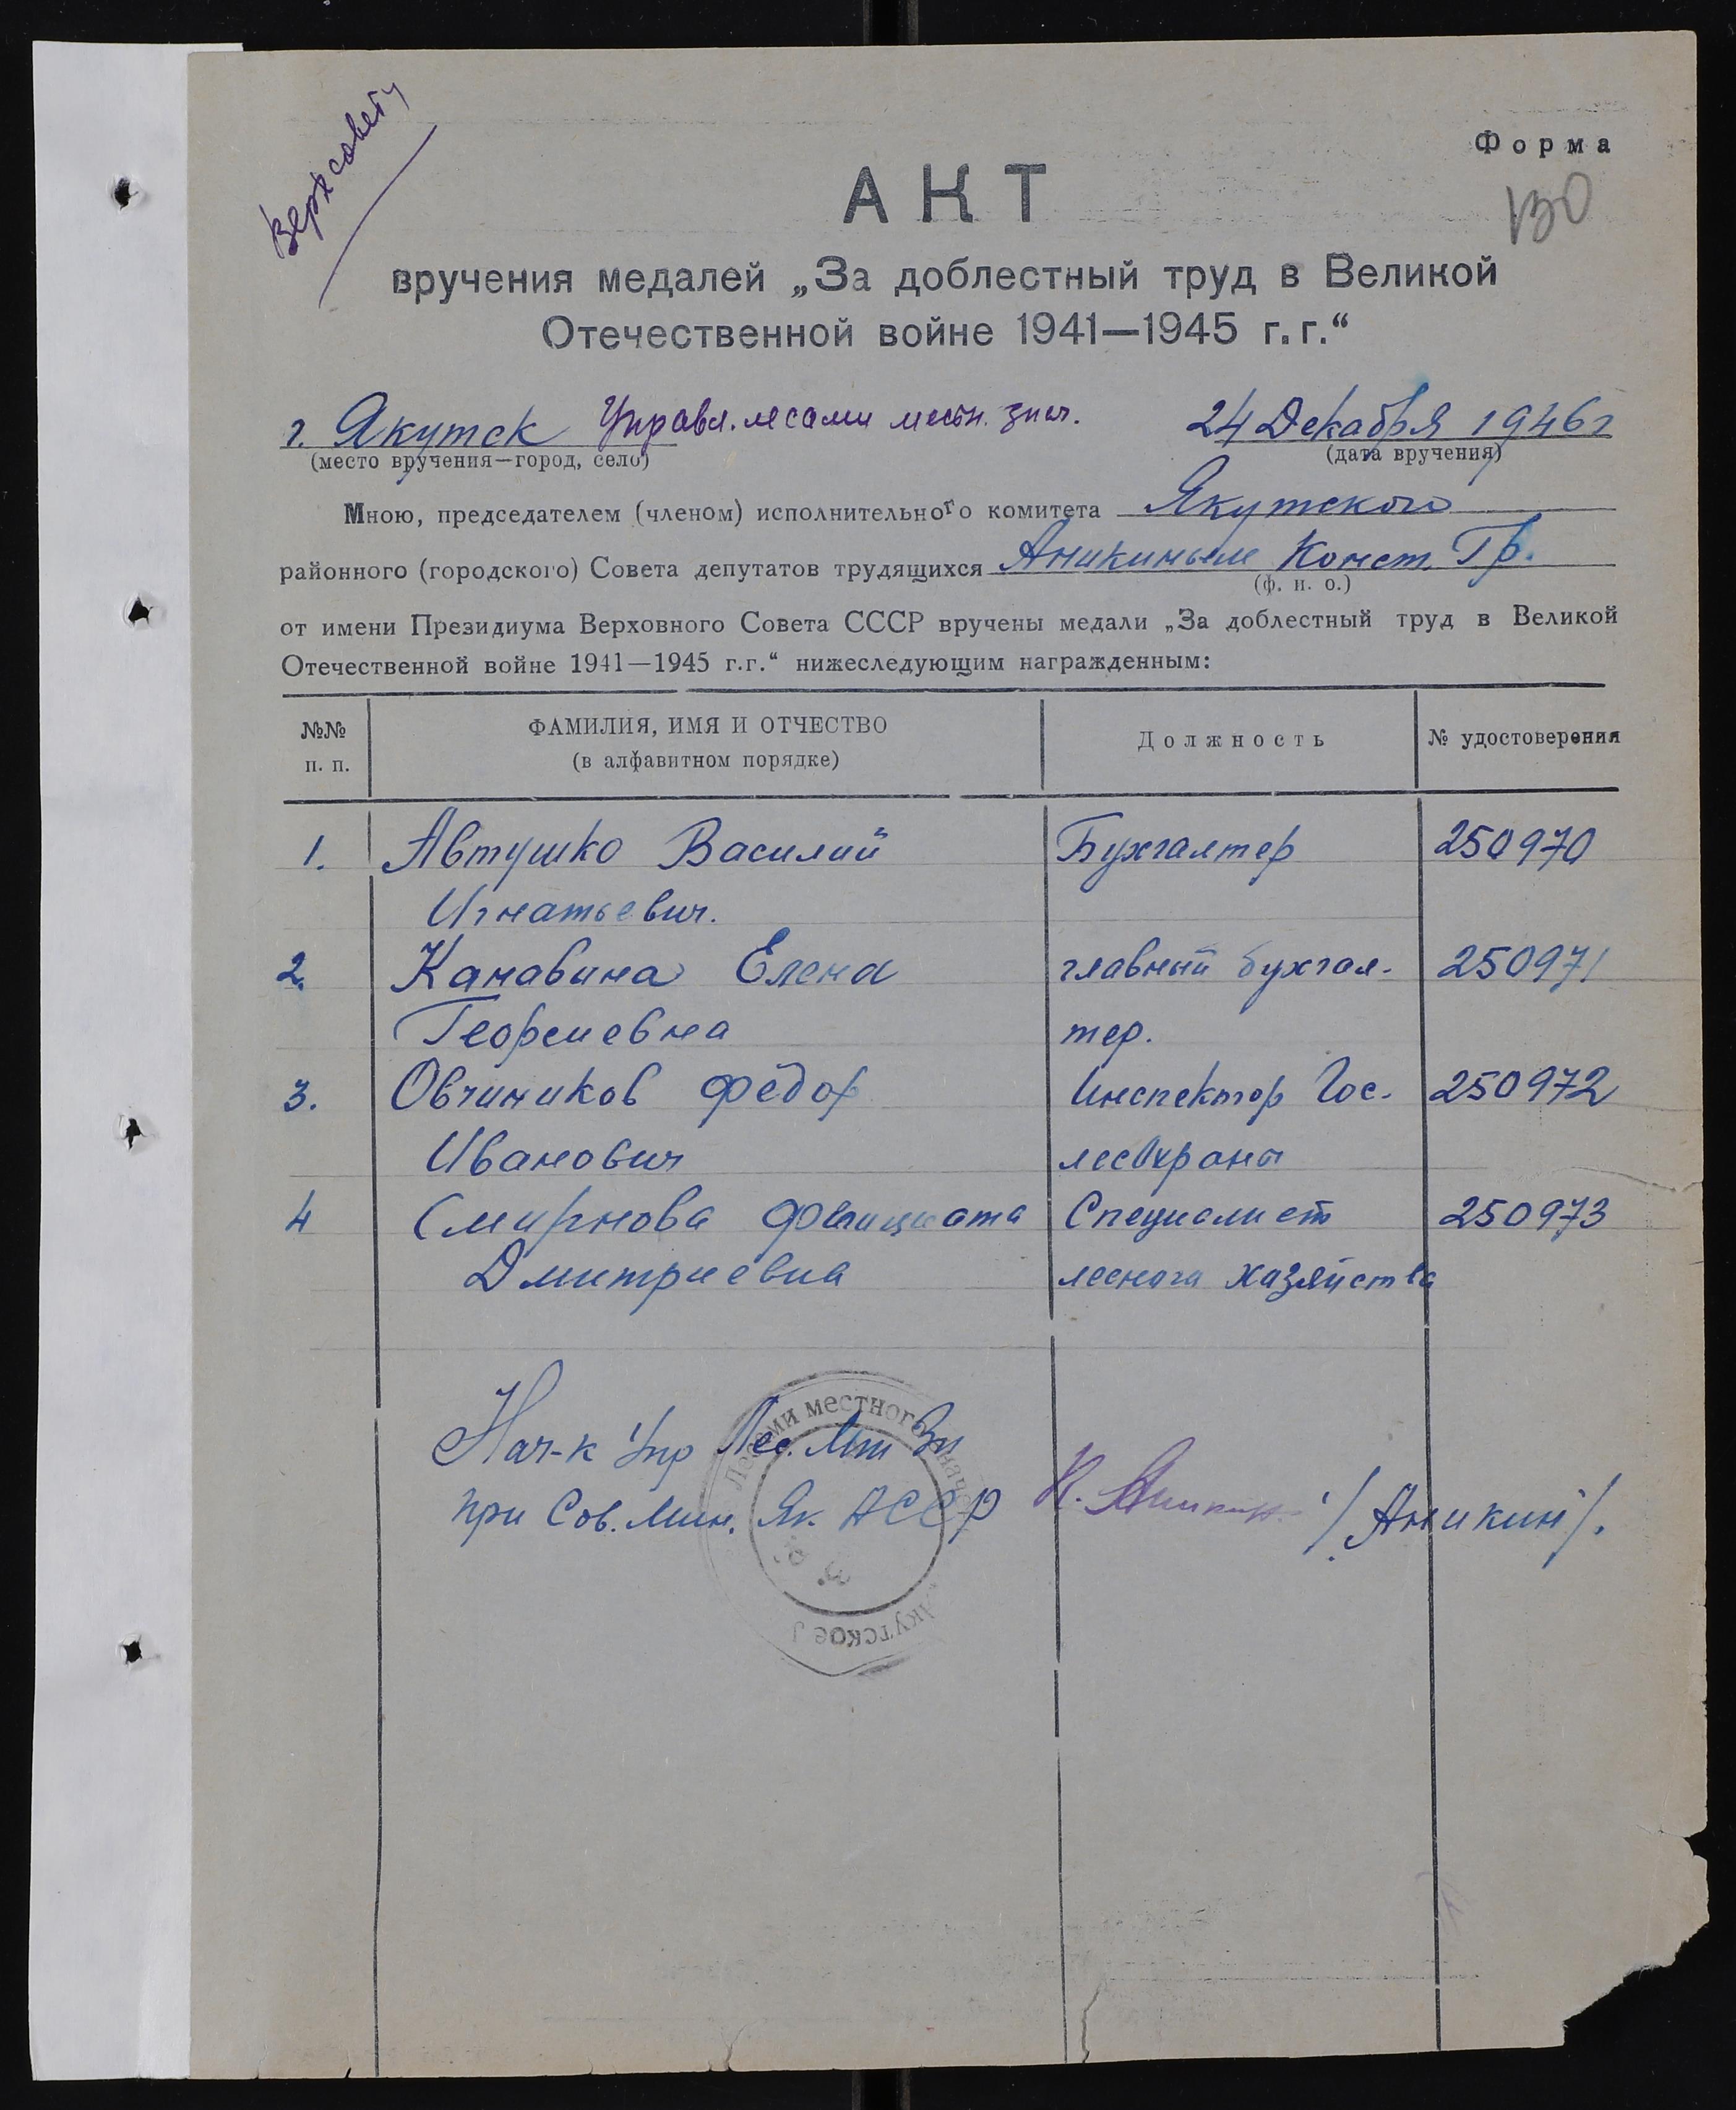 Верхсовету
Форма
130
АКТ
вручения медалей „За доблестный труд в Великой
Отечественной войне 1941—1945 г.г.“
г. Якутск Управл. лесами местн. знач. 24 Декабря 1946 г
(место вручения—город, село) (дата вручения)
Мною, председателем (членом) исполнительного комитета Якутского
районного (городского) Совета депутатов трудящихся Аникиным Конст. Гр.
(ф. и. о.)
от имени Президиума Верховного Совета СССР вручены медали „За доблестный труд в Великой
Отечественной войне 1941—1945 г.г.“ нижеследующим награжденным:
№№ п. п. ФАМИЛИЯ, ИМЯ И ОТЧЕСТВО (в алфавитном порядке) Должность № удостоверения
1. Автушко Василий Бухгалтер 250970
Игнатьевич.
2. Канавина Елена главный бухгал- 250971
Георгиевна тер.
3. Овчиников Фёдор Инспектор Гос. 250972
Иванович лесохраны
4 Смирнова Специалист 250973
Дмитриевна леснога хазяйства
Нач-к Упр Лес. Мт Зн
при Сов. Мин. Як. АССР К. Аникин /Аникин/.
Лесами местного значе
Якутское